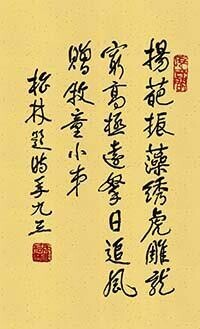 揚葩振藻绣虎雕龙
穷高极遠擎日追风
贈牧童小弟
松林題時年九三